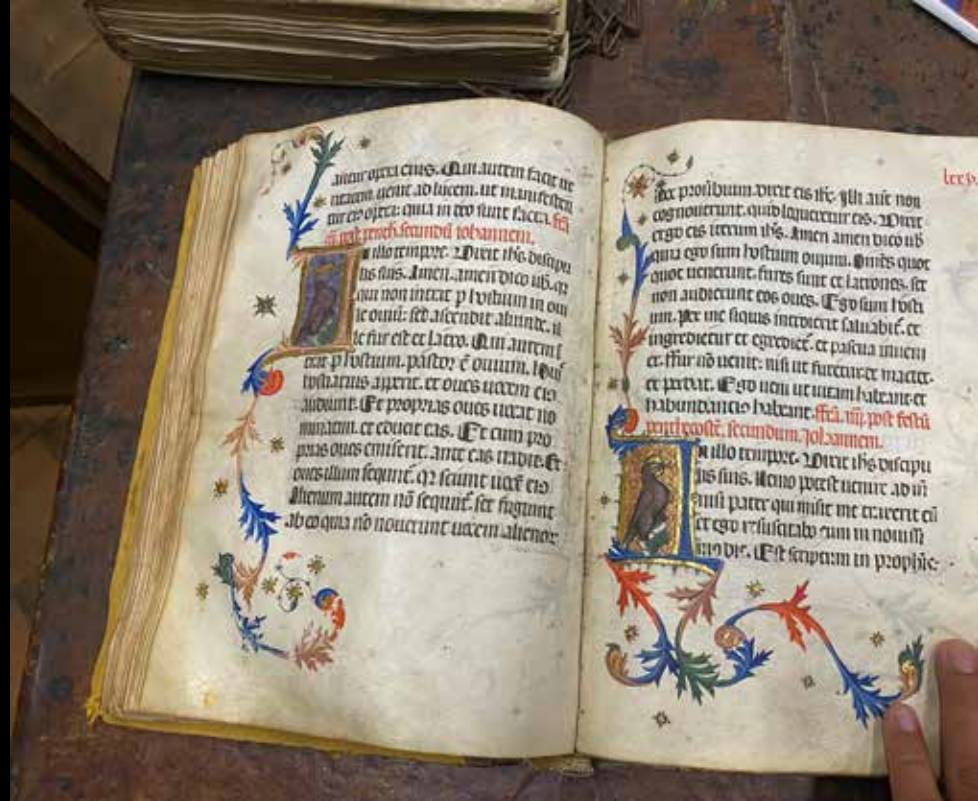 antur opera eius. Qui autem facit ue
ritatem. uenit ad lucem. ut manifesten
tur eius opera: quia in deo sunt facta. fia
iij post penth. secundu iohannem.
In illo tempore. Dixit ihs discipu
lis suis. Amen. amen dico uob. qi
qui non intrat p hostium in oui
le ouiu: sed ascendit aliunde. il
le fur est et latro. Qui autem i
trat p hostium. pastor e ouium. huic
hostiarius aperit. et oues uocem eius
audiunt. Et proprias oues uocat no
minatim. et educit eas. Et cum pro
prias oues emiserit. ante eas uadit. Et
oues illum sequnt. qi sciunt uoce eius
Alienum autem no sequnt. set fugiunt
ab eo quia no nouerunt uocem alienor
lec prouerbium. dixit eis ihc. Illi aut non
cognouerunt. quid loqueretur eis. Dixit
ergo eis iterum ihs. Amen amen dico uob
quia ego sum hostium ouium. Omes quot
quot uenerunt. fures sunt et latrones. set
non audierunt eos oues. Ego sum hosti
um. Per me siquis introierit saluabit. et
ingredietur et egrediet. et pascua inueni
et. ffur no uenit: nisi ut furetur et mactet.
et perdat. Ego ueni ut uitam habeant et
habundancius habeant. ffia. iiij. post festu
penthecoste. secundum. Iohannem.
In illo tempore. Dixit ihs discipu
lis suis. Nemo potest uenire ad m
nisi pater qui misit me traxerit eu
et ego resuscitabo eum in nouissi
mo die. Est scriptum in prophis: